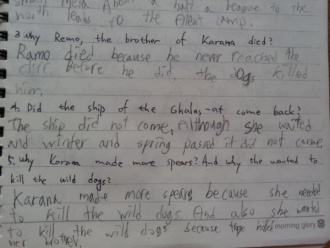 small mesa About a half a league to the
north leads to the Aleut camp.
3. Why Remo, the brother of Karana died?
Ramo died because he never reached the
cliff before he did, the dogs killed
him.
4. Did the ship of the Ghalas-at come back?
The ship did not come, Although she waited
and winter and spring passed it did not come
5. Why Karana made more spears? And why she wanted to
kill the wild dogs?
Karana made more spears because she needed
to kill the wild dogs. And also she wanted
to kill the wild dogs because they killed
her brother.
morning glory